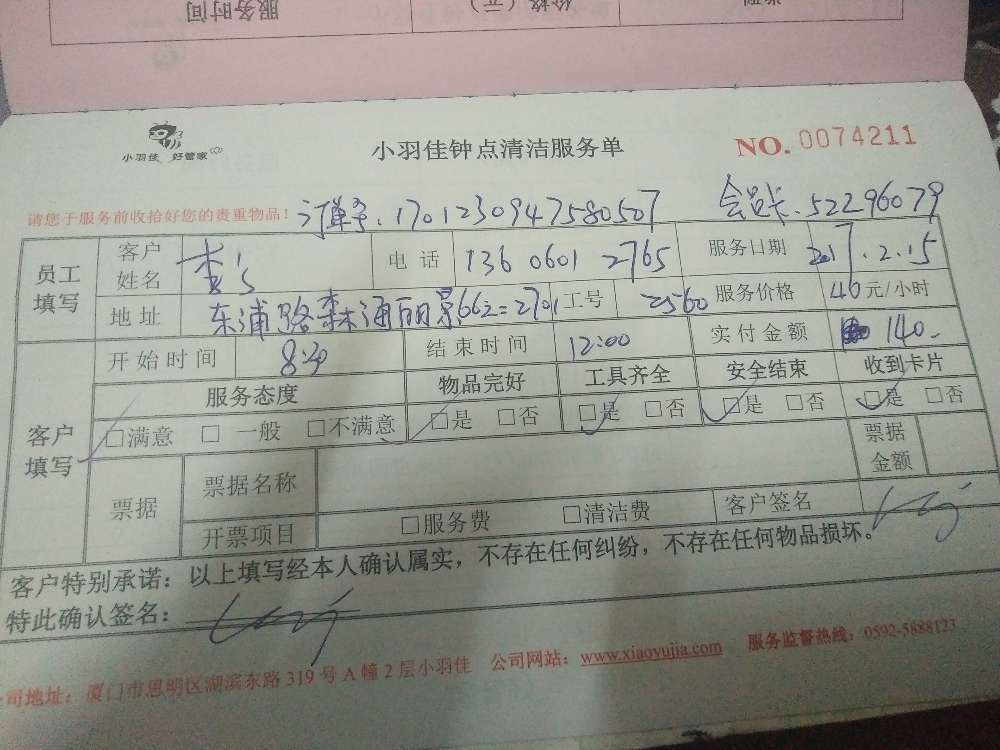 服务时间 价格（元） 类别
小羽佳 好管家
小羽佳钟点清洁服务单
NO. 0074211
请您于服务前收拾好您的贵重物品！ 订单号.1701230947580507 会员卡.52296079
员工填写 客户姓名 李's 电话 136 0601 2765 服务日期 2017.2.15
地址 东浦路森海丽景66之=2701 工号 2560 服务价格 40元/小时
开始时间 8:30 结束时间 12:00 实付金额 140-
客户填写 服务态度 物品完好 工具齐全 安全结束 收到卡片
□满意 □一般 □不满意 □是 □否 □是 □否 □是 □否 □是 □否
票据 票据名称 票据金额
开票项目 □服务费 □清洁费 客户签名
客户特别承诺：以上填写经本人确认属实，不存在任何纠纷，不存在任何物品损坏。
特此确认签名：
公司地址：厦门市思明区湖滨东路319号A幢2层小羽佳 公司网站：www.xiaoyujia.com 服务监督热线：0592-5888123